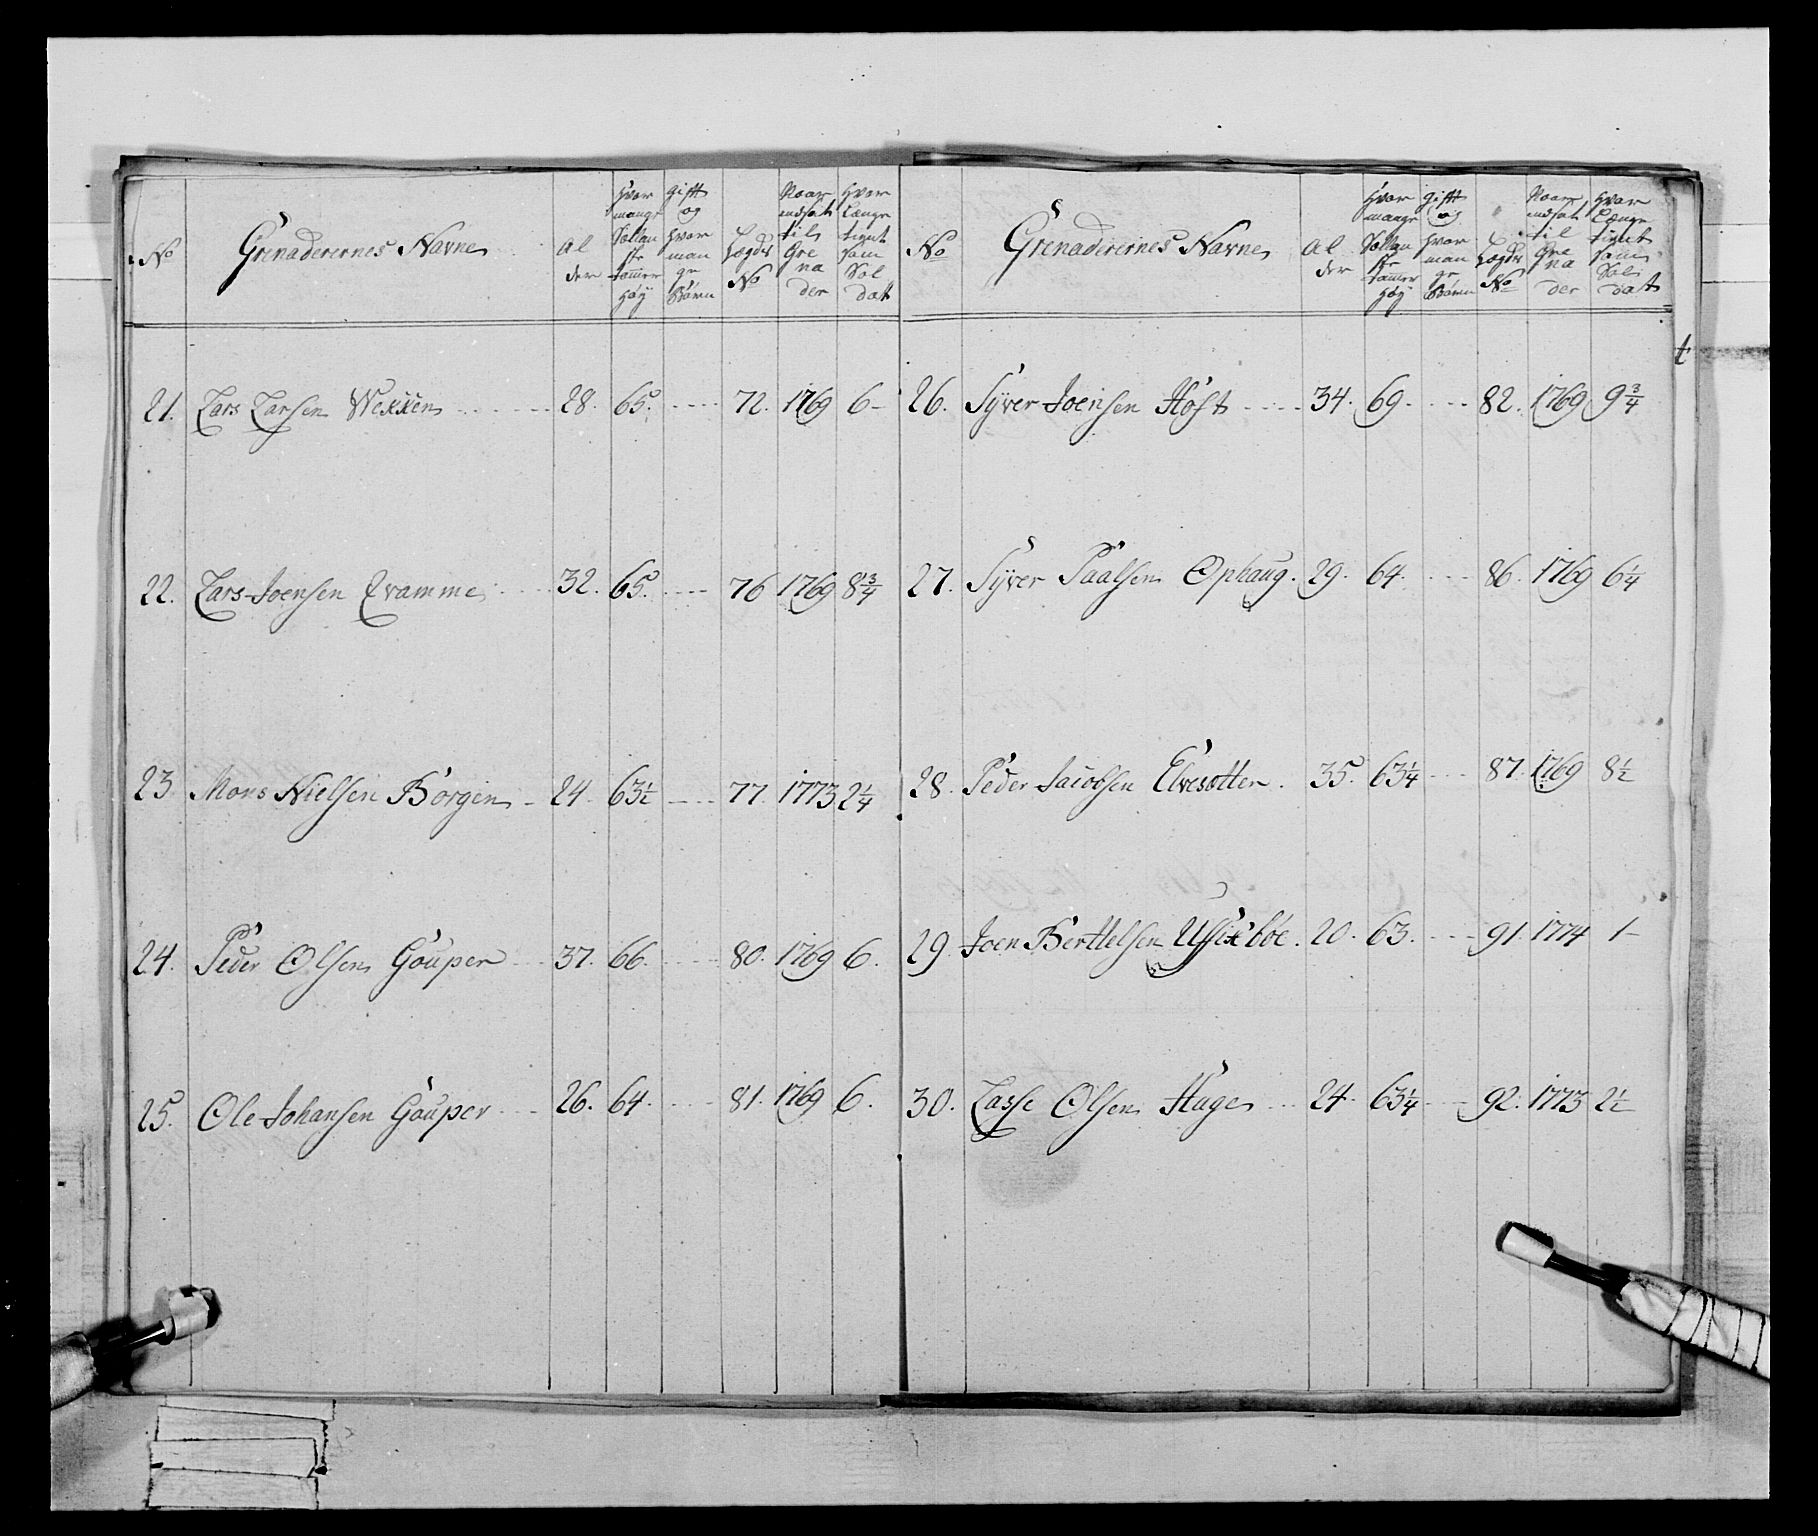 No Grenaderernes Navne Al der Hvor mange Sællan ste tommer høy gift og hvor man ge Børn Lægdes No Naar indsat til Gre na der Hvor Længe tient som Sol dat
21. Lars Larsen Wekken 28. 65. 72. 1769 6
22. Lars Joensen Qvamme 32. 65. 76 1769 8 3/4
23 Mons Nielsen Borgen 24. 63 1/2 77. 1773 2 1/4
24. Peder Olsen Gouper 37. 66. 80. 1769 6.
25. Ole Johansen Gouper 26. 64. 81. 1769 6.
No Grenaderernes Navne Al der Hvor mange Sællan ste tommer høy Gift og hvor man ge Børn Lægdes No Naar indsat til Gre na der Hvor Længe tient som Sol dat
26. Syver Joensen Høst 34. 69. 82. 1769 9 3/4
27. Syver Paalsen Ophaug. 29. 64. 86. 1769 6 1/4
28. Peder Jacobsen Elvesætter. 35. 63 1/4 87. 1769 8 1/2
29. Joen Berttelsen 20. 63. 91. 1774 1
30. Lasse Olsen Huge 24. 63 1/4 92. 1773 2 1/2
t